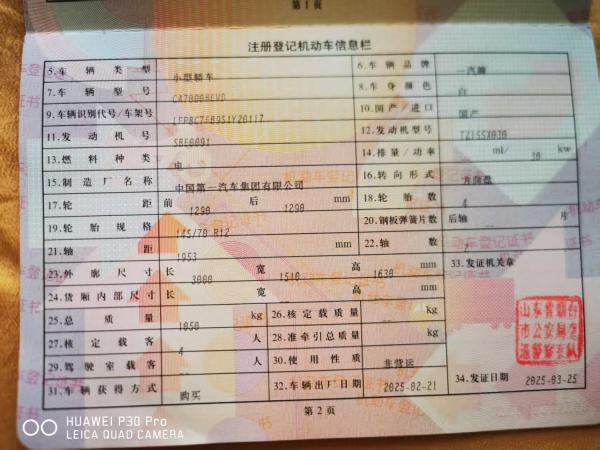 第1页
注册登记机动车信息栏
5.车辆类型 小型轿车 6.车辆品牌 一汽牌
7.车辆型号 8.车身颜色 白
9.车辆识别代号/车架号 10.国产/进口 国产
11.发动机号 12.发动机型号 TZ155X030
13.燃料种类 电 14.排量/功率 ml/ 30 kw
15.制造厂名称 中国第一汽车集团有限公司 16.转向形式 方向盘
17.轮距 前 1290 后 1290 mm 18.轮胎数 4
19.轮胎规格 145/70 R12 20.钢板弹簧片数 后轴 片
21.轴距 1953 mm 22.轴数
23.外廓尺寸 长 3000 宽 1510 高 1630 mm 33.发证机关章
24.货厢内部尺寸 长 宽 高 mm
25.总质量 1050 kg 26.核定载质量 kg
27.核定载客 4 人 28.准牵引总质量 kg
29.驾驶室载客 人 30.使用性质 非营运
31.车辆获得方式 购买 32.车辆出厂日期 2025-02-21 34.发证日期 2025-03-25
第2页
HUAWEI P30 Pro
LEICA QUAD CAMERA